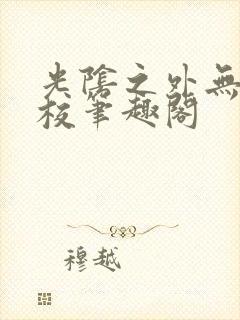 光陰之外無
校筆趣閣
穆越